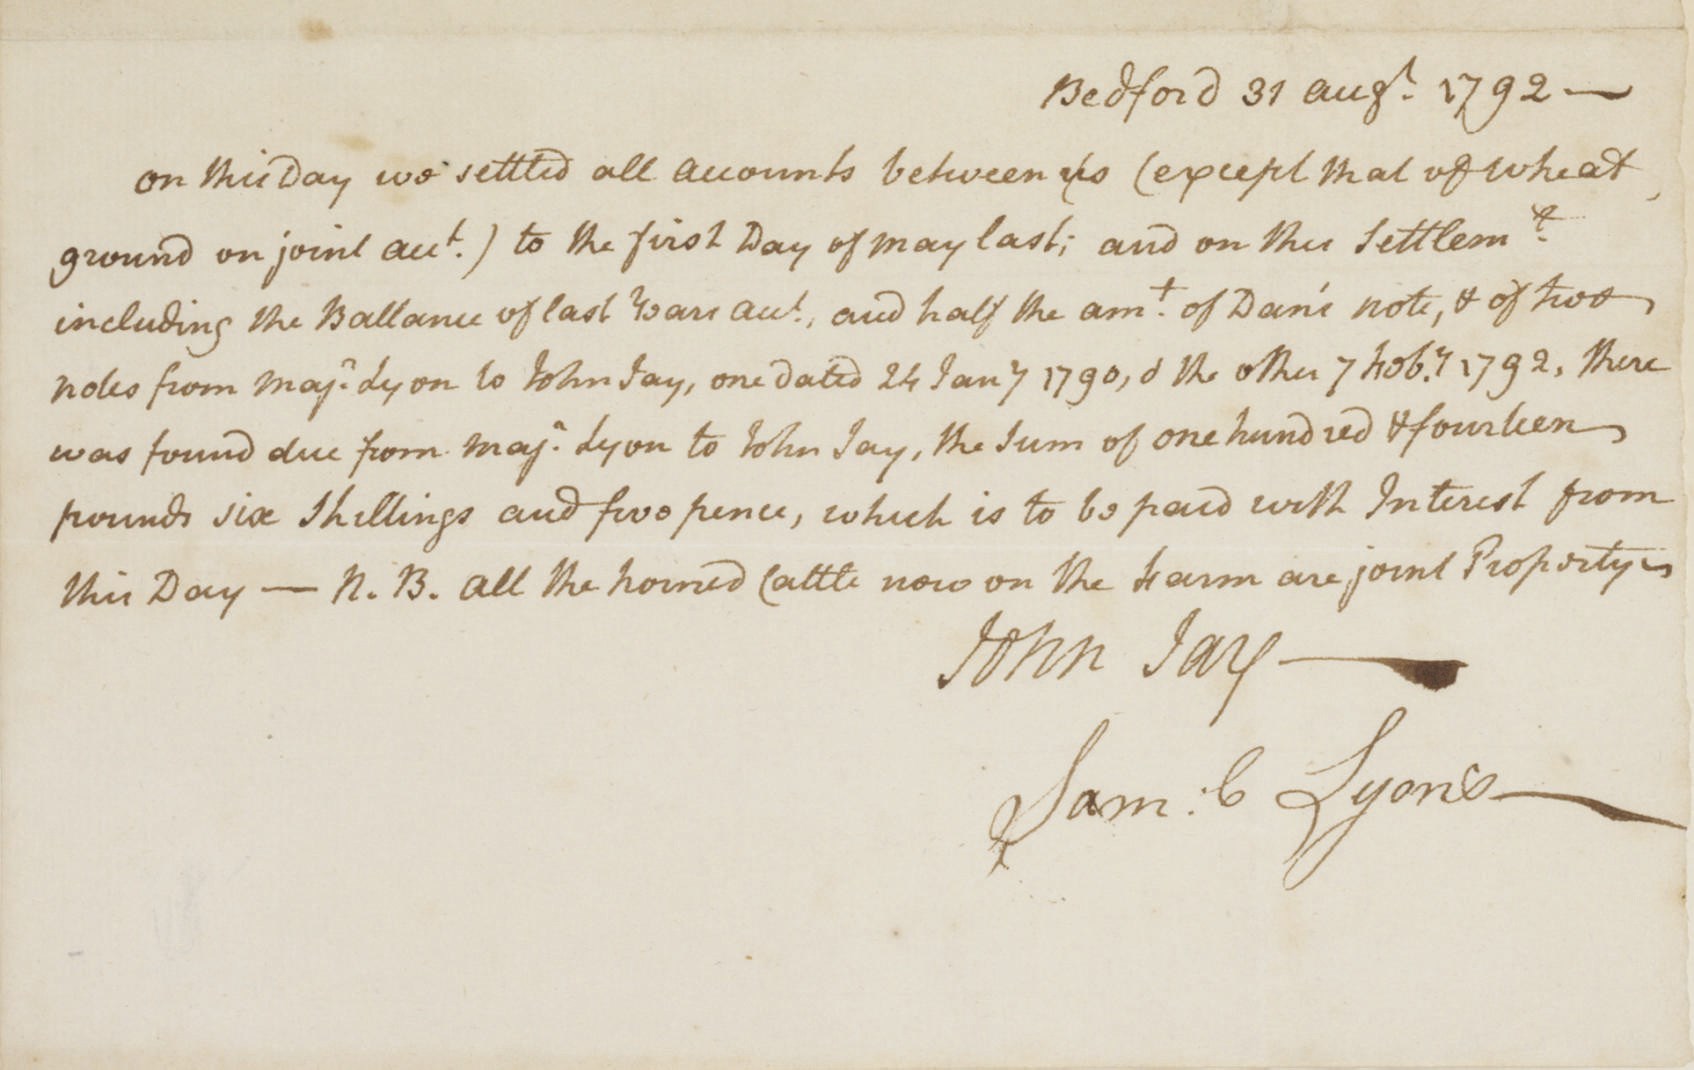 Bedford 31 augt. 1792 —
on this Day we settled all accounts between us (except that of wheat
ground on joint acct.) to the first Day of may last; and on this settlemt.
including the Ballance of last Years acct., and half the amt. of Dan's note, & of two
notes from majr. Lyon to John Jay, one dated 24 Jany 1790, & the other 7 Feby. 1792, there
was found due from majr. Lyon to John Jay, the sum of one hundred & fourteen
pounds six shillings and two pence, which is to be paid with Interest from
this Day — N.B. all the horned Cattle now on the Farm are joint Property —
John Jay —
Saml Lyon —